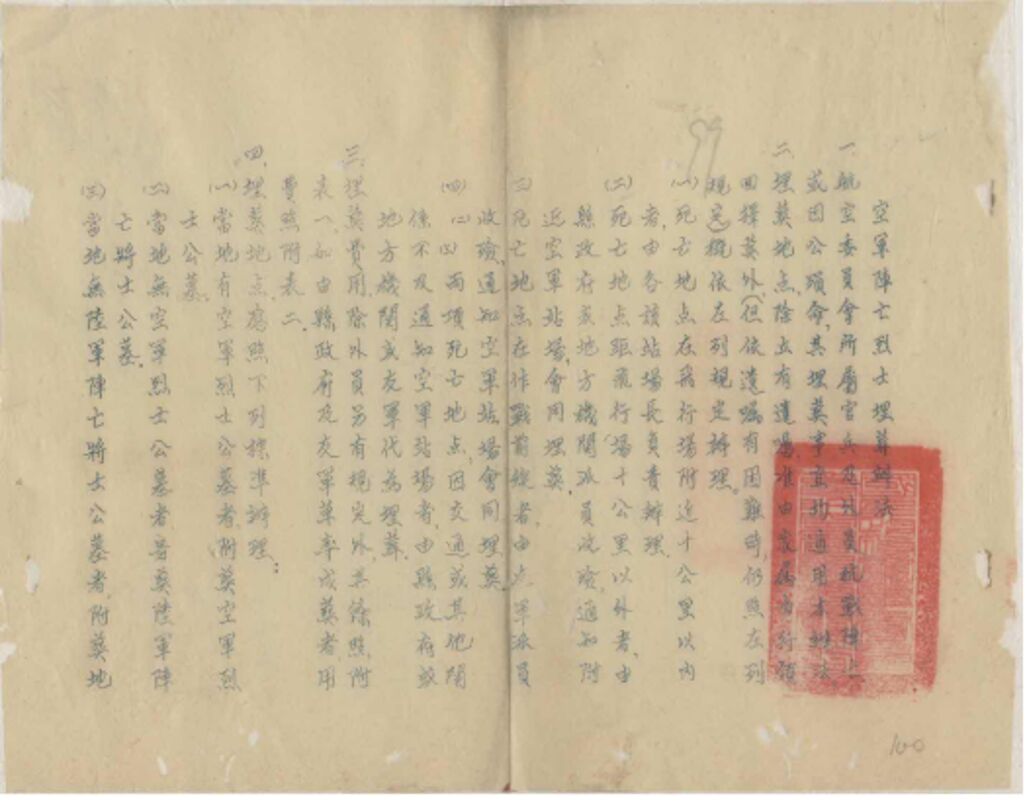 空軍陣亡烈士埋葬辦法
一、航空委員會所屬官兵及外員抗戰陣亡
或因公殞命，其埋葬事宜均適用本辦法
二、埋葬地点，除立有遺囑，准由家屬自行領
回擇葬外，（但依遺囑有困難時，仍照左列
規定）概依左列規定辦理。
(一)死亡地点在飛行場附近十公里以內
者，由各該站場長負責辦理。
(二)死亡地点距飛行場十公里以外者，由
縣政府或地方機關派員收殮，通知附
近空軍站場，會同埋葬。
(三)死亡地点在作戰前線者，由友軍派員
收殮，通知空軍站場會同埋葬。
(四)(二)(三)兩項死亡地点，因交通或其他關
係不及通知空軍站場者，由縣政府或
地方機關或友軍代為埋葬。
三、埋葬費用，除外員另有規定外，其餘照附
表一，如由縣政府及友軍草率成葬者，用
費照附表二。
四、埋葬地点，應照下列標準辦理：
(一)當地有空軍烈士公墓者，附葬空軍烈
士公墓。
(二)當地無空軍烈士公墓者，葬陸軍陣
亡將士公墓。
(三)當地無陸軍陣亡將士公墓者，附葬地
99
100